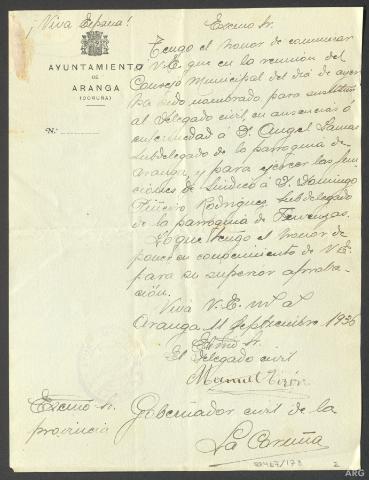 ¡Viva España!
AYUNTAMIENTO
DE
ARANGA
(CORUÑA)
N.º
Excmo Sr.
Tengo el honor de comunicar
á V.E. que en la reunión del
Consejo Municipal del día de ayer
ha sido nombrado, para sustituir
al delegado civil, en ausencias ó
enfermedad á D. Angel Lamas
Subdelegado de la parroquia de
Aranga y para ejercer las fun-
ciones de Sindico á D. Domingo
Piñeiro Rodriguez, Subdelegado
de la parroquia de Fervenzas.
Lo que tengo el honor de
poner en conocimiento de V.E.
para su superior aproba-
ción.
Viva V.E. m.s a.s
Aranga 11 Septiembre 1936
Excmo Sr.
El Delegado civil
Manuel
Excmo Sr. Gobernador civil de la
provincia
La Coruña
2
ARG